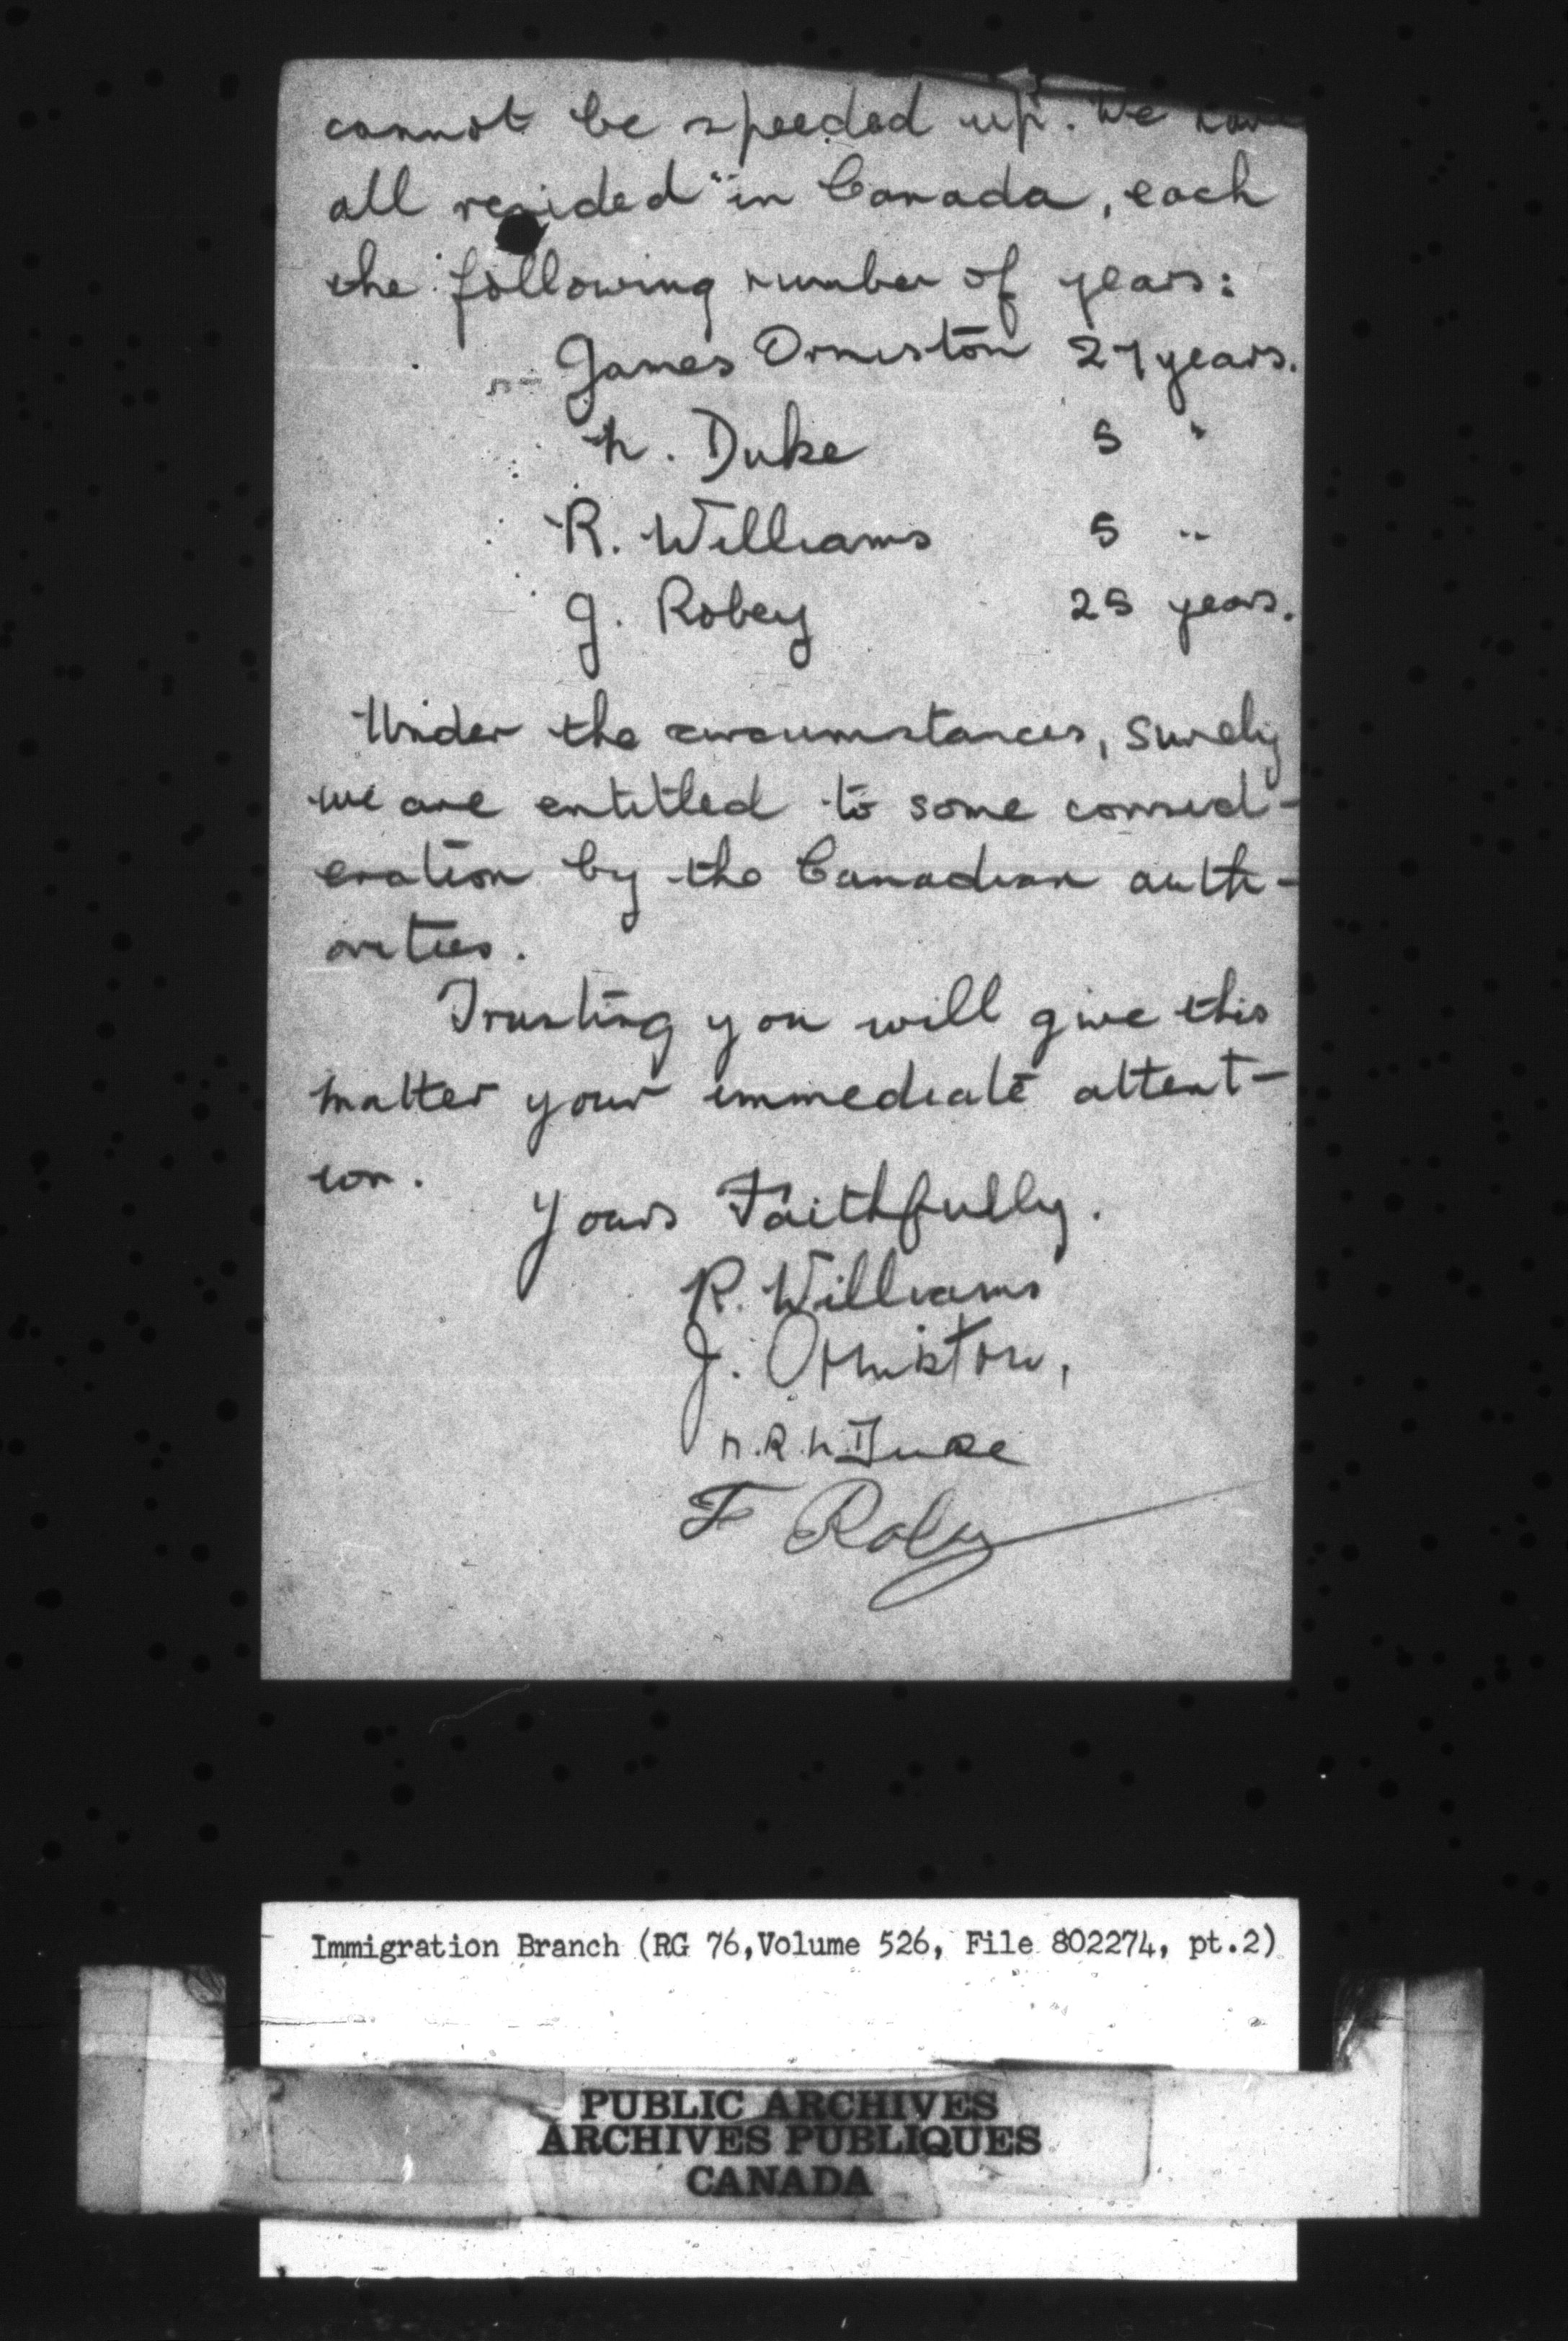 cannot be speeded up. We have
all resided in Canada, each
the following number of years:
James Ormiston 27 years.
N. Duke 5 "
R. Williams 5 "
J. Robey 25 years.
Under the circumstances, surely
we are entitled to some consid-
eration by the Canadian auth-
orities.
Trusting you will give this
matter your immediate attent-
ion.
Yours Faithfully.
R. Williams
J. Ormiston,
N.R.N. Duke
F Robey
Immigration Branch (RG 76,Volume 526, File 802274, pt.2)
PUBLIC ARCHIVES
ARCHIVES PUBLIQUES
CANADA